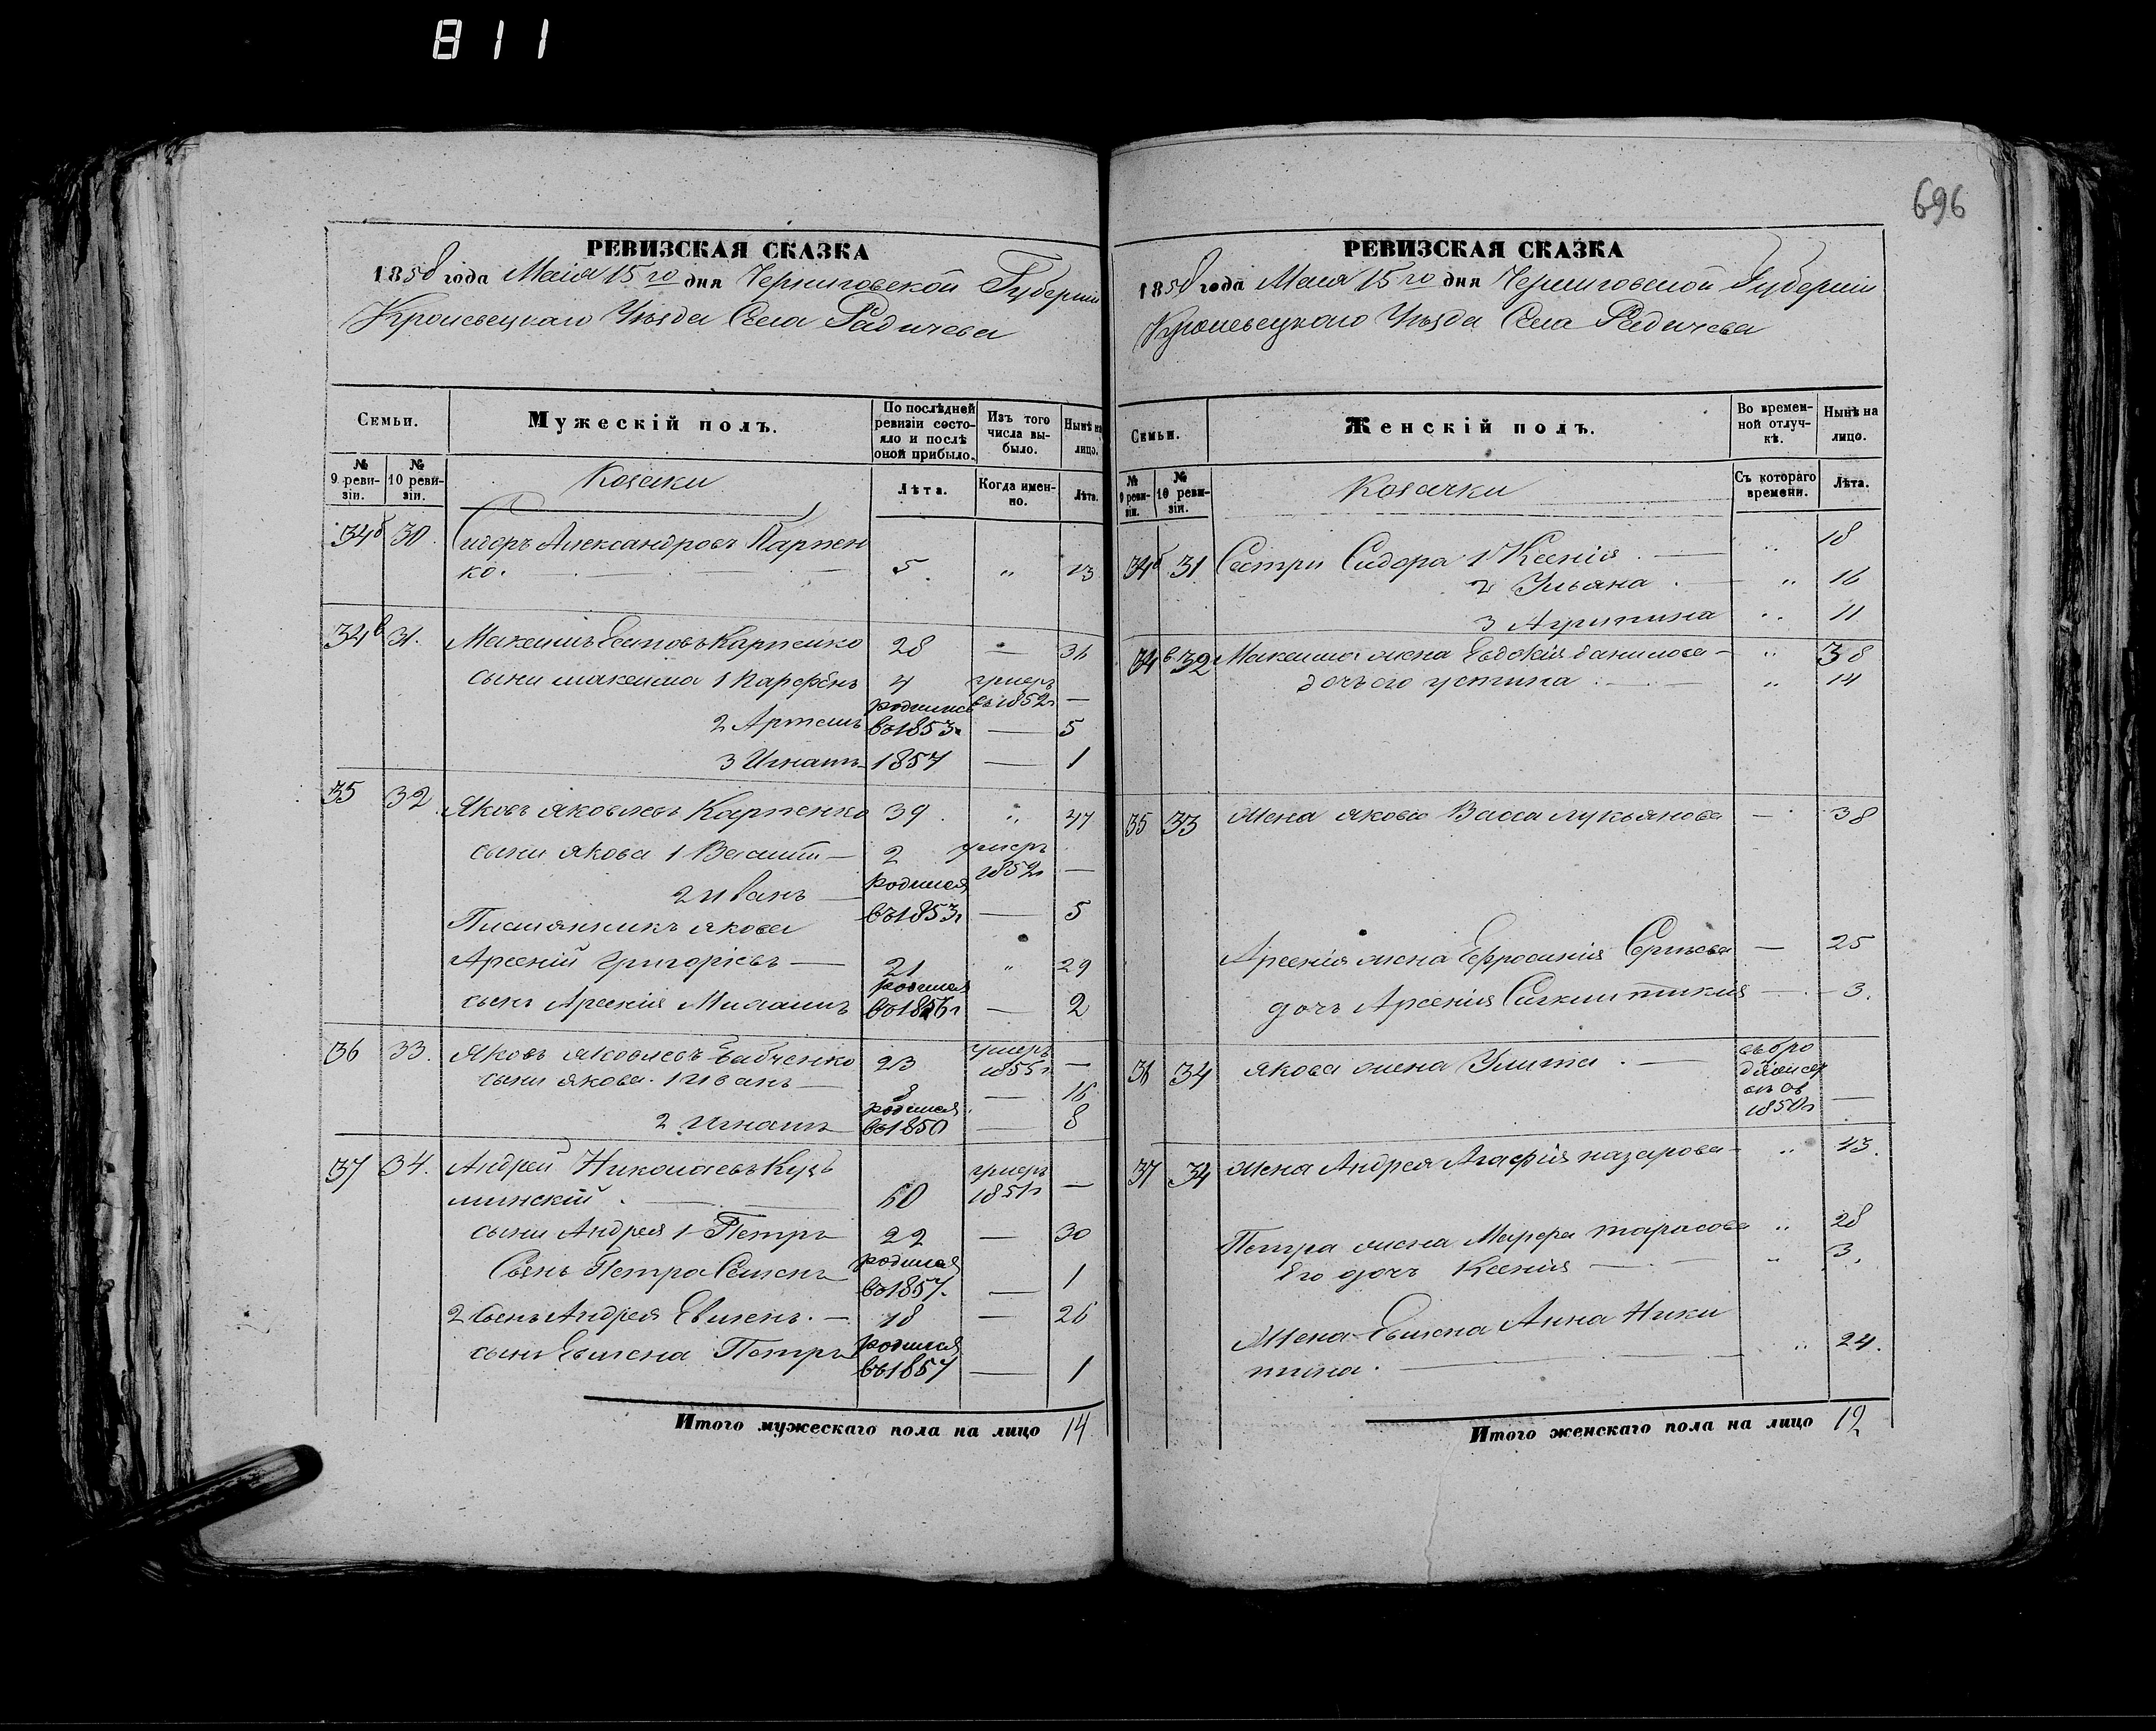 811
696
РЕВИЗСКАЯ СКАЗКА
1858 года Маія 15го дня Черниговской Губерніи
Кролевецкаго Уѣзда Села Радичева
Семьи.
Мужескій полъ.
По послѣдней ревизіи состояло и послѣ оной прибыло.
Изъ того числа выбыло.
Нынѣ на лицо.
№ 9 ревизіи.
№ 10 ревизіи.
Козаки
Лѣта.
Когда именно.
Лѣта.
34б 30. Сидоръ Александровъ Карпен
ко. 5 " 13
34в 31. Максимъ Есиповъ Карпенко 28 — 36
сыни максима 1 Парфенъ 4 умеръ въ 1852г —
2 Артемъ родился въ 1853г — 5
3 Игнатъ 1857 — 1
35 32. Яковъ яковлевъ Карпенко 39 " 47
сыни якова 1 2 умеръ 1852г —
2 иванъ родился въ 1853г — 5
Племянникъ якова
Арсеній григорьевъ — 21 " 29
сынъ Арсенія родился въ 1856г — 2
36 33. Яковъ яковлевъ Бабченко 23 умеръ 1855г —
сыни якова 1 иванъ 8 — 16
2 Игнатъ родился въ 1850 — 8
37 34. Андрей Николаевъ Кузь
минскій 60 умеръ 1851г —
сыни Андрея 1 Петръ 22 — 30
Сынъ Петра Семенъ родился въ 1857. — 1
2 Сынъ Андрея Евменъ — 18 — 26
сынъ Евмена Петръ родился въ 1857 — 1
Итого мужескаго пола на лицо 14
РЕВИЗСКАЯ СКАЗКА
1858 года Маія 15го дня Черниговской Губерніи
Кролевецкаго Уѣзда Села Радичева
Семьи.
Женскій полъ.
Во временной отлучкѣ.
Нынѣ на лицо.
№ 9 ревизіи.
№ 10 ревизіи.
Козачки
Съ котораго времени.
Лѣта.
34б 31 Сестри Сидора 1 Ксенія — " 18
2 Ульяна — " 16
3 Агрипина " 11
34в 32 Максима жена Евдокія данилова — " 38
дочь его устина — " 14
35 33 жена якова Васса лукьянова — 38
Арсенія жена Ефросинія Сергѣева — 25
дочь Арсенія — 3.
36 34 якова жена Улита — 1850г —
37 34 жена Андрея Агафія назарова — " 43.
Петра жена Марфа тарасова " 28
Его дочь Ксенія — " 3.
Жена Евмена Анна Ники
тина. — " 24.
Итого женскаго пола на лицо 12